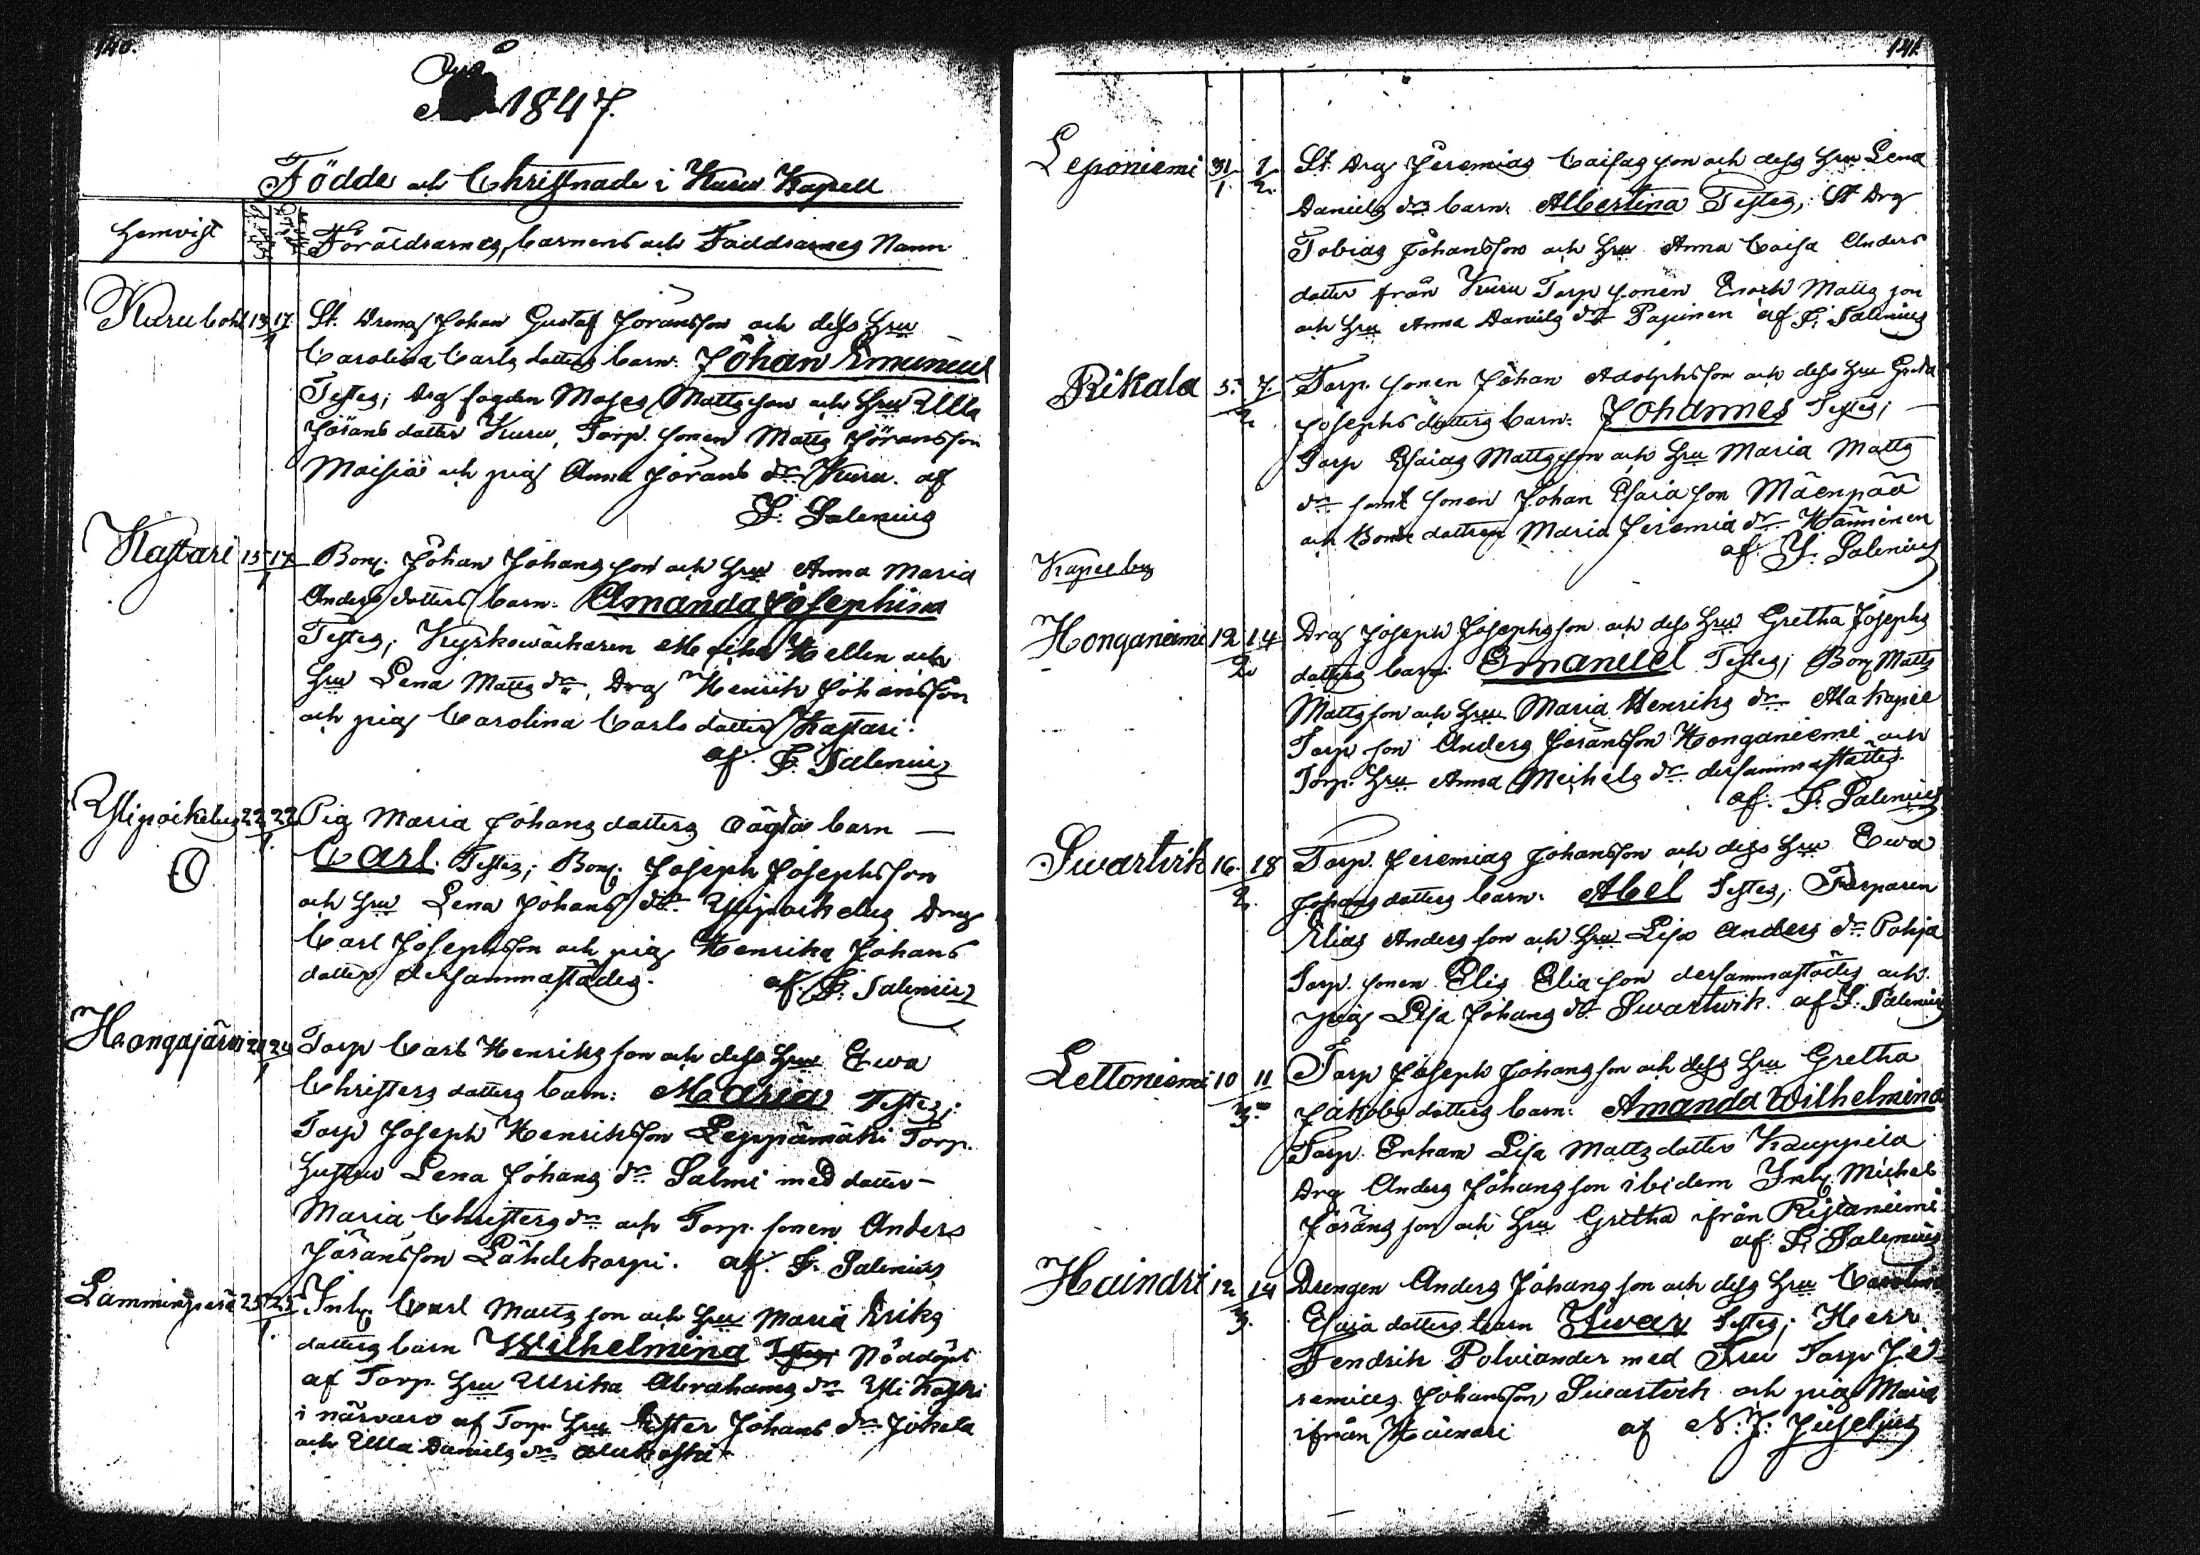 140.
År 1847.
Födde och Christnade i Kuru Kapell
Hemvist Föräldrarnes, barnens och Faddrarnes Namn
Kuru bohl 13 17/1 St. Dreng Johan Gustaf Joransson och dess Hru
Carolina Carls dotters barn: Johan Emanuel
Testes; Drg fogden Moses Matts son och Hru Ulla
Jörans dotter Kuru, Torp. sonen Matts Jöransson
Maisia och pig Anna Jörans dr Kuru. af
F. Salenius
Kastari 15 17/1 Bond. Johan Johans son och Hru Anna Maria
Anders dotters barn: Amanda Josephina
Testes; Kyrkowäcktaren Hellen och
Hru Lena Matts dr, Drg Henrik Johansson
och pig Carolina Carls dotter Kastari.
af. F. Salenius
22 22/1 Pig Maria Johans dotters oägta barn —
Carl. Testes; Bond. Joseph Josephsson
och Hru Lena Johans dr Dreng
Carl Josephsson och pig Henrika Johans
dotter dersammastädes. af. F. Salenius
Hongajärvi 24/1 Torp Carl Henriks son och dess Hru Ewa
Christers dotters barn: Maria Testes;
Torp Joseph Henriksson Leppämäki Torp.
Hustru Lena Johans dr Salmi med dotter –
Maria Christers dr och Torp. sonen Anders
Jöransson Lähdekorpi. af. F. Salenius
Lamminperä 25 25/1. Inh. Carl Matts son och Hru Maria Eriks
dotters barn Wilhelmina Testes; Nöddöpt
af Torp. Hru Ulrika Abrahams dr Yli
i närvaro af Torp. Hru Ester Johans dr Jokela
och Ulla Daniels dr
141.
Leponiemi 31/1 2/2. St. Drg Jeremias Caisas son och dess Hru Lena
Daniels drs barn: Albertina Testes; St Drg
Tobias Johansson och Hru Anna Caisa Anders
dotter från Kuru Torp sonen Enoch Matts son
och Hru Anna Daniels dr Papinen af F. Salenius
Rikala 5. 7./2 Torp. sonen Johan Adolphsson och dess Hru Greta
Josephs dotters barn: Johannes Testes; —
Torp Esaias Mattsson och Hru Maria Matts
dr samt sonen Johan Esaia son Mäenpää
och Bonde dottren Maria Jeremia dr Hänninen
af F. Salenius
Kapelby
Honganiemi 12 14/2 Drg Joseph Josephsson och dess Hru Gretha Josephs
dotters barn: Emanuel Testes; Bond Matts
Mattsson och Hru Maria Henriks dr Alakapee
Torp son Anders Joransson Honganiemi och
Torp. Hru Anna Michels dr dersammastädes.
af. F. Salenius
Swartvik 16. 18/2. Torp. Jeremias Johansson och dess Hru Ewa
Johans dotters barn: Abel Testes; Torparen
Elias Anders son och Hru Lisa Anders dr Pohja
Torp. sonen Elis Elia son dersammastädes och
pig Lisa Johans dr Swartwik. af F. Salenius
Lettoniemi 10 11/3. Torp Joseph Johans son och dess Hru Gretha
Jakobs dotters barn: Amanda Wilhelmina
Torp. Enkan Lisa Matts dotter Kauppila
Drg Anders Johans son ibidem Inh. Michel
Jörans son och Hru Gretha ifrån Ristaniemi
af F. Salenius
Haindri 12 14/3. Drengen Anders Johans son och dess Hru Carolina
Esaia dotters barn Iwar Testes; Herr
Fendrik Polviander med Fru Torp Je-
remias Johansson Swartvik och pig Maria
ifrån af N. J. Juselius